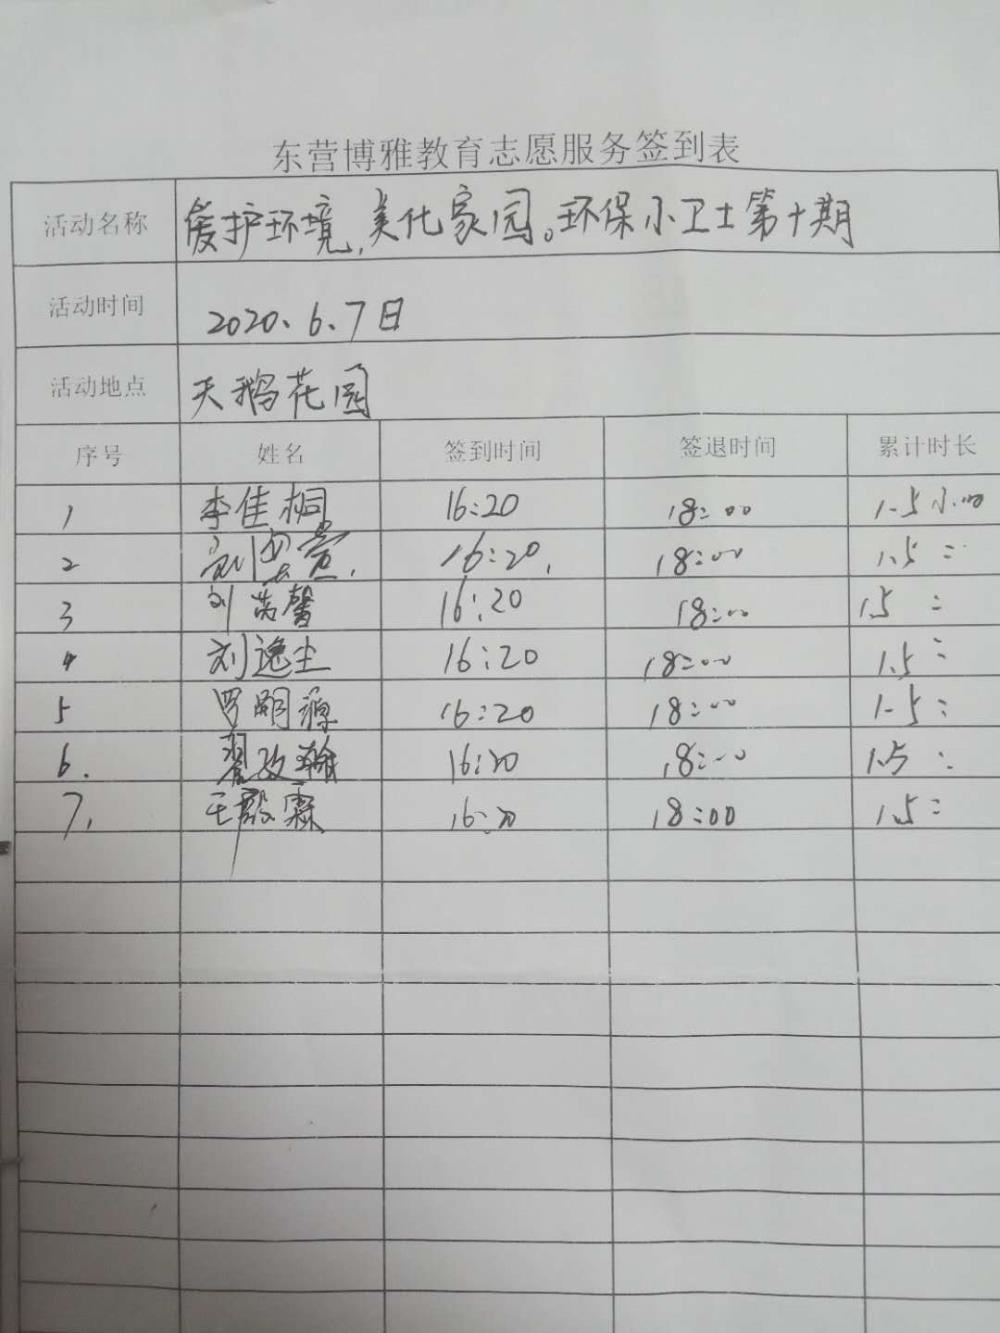 东营博雅教育志愿服务签到表
活动名称 爱护环境,美化家园。环保小卫士第十期
活动时间 2020、6、7日
活动地点 天鹅花园
序号 姓名 签到时间 签退时间 累计时长
1 李佳桐 16:20 18:00 1.5小时
2 刘 16:20, 18:00 1.5 :
3 刘芮馨 16:20 18:00 1.5 :
4 刘逸尘 16:20 18:00 1.5 :
5 罗嗣源 16:20 18:00 1.5 :
6. 翟政瀚 16:20 18:00 1.5 :
7. 王毅霖 16:20 18:00 1.5 :